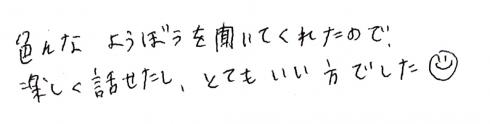 色んな ようぼうを聞いてくれたので、
楽しく話せたし、とてもいい方でした☺